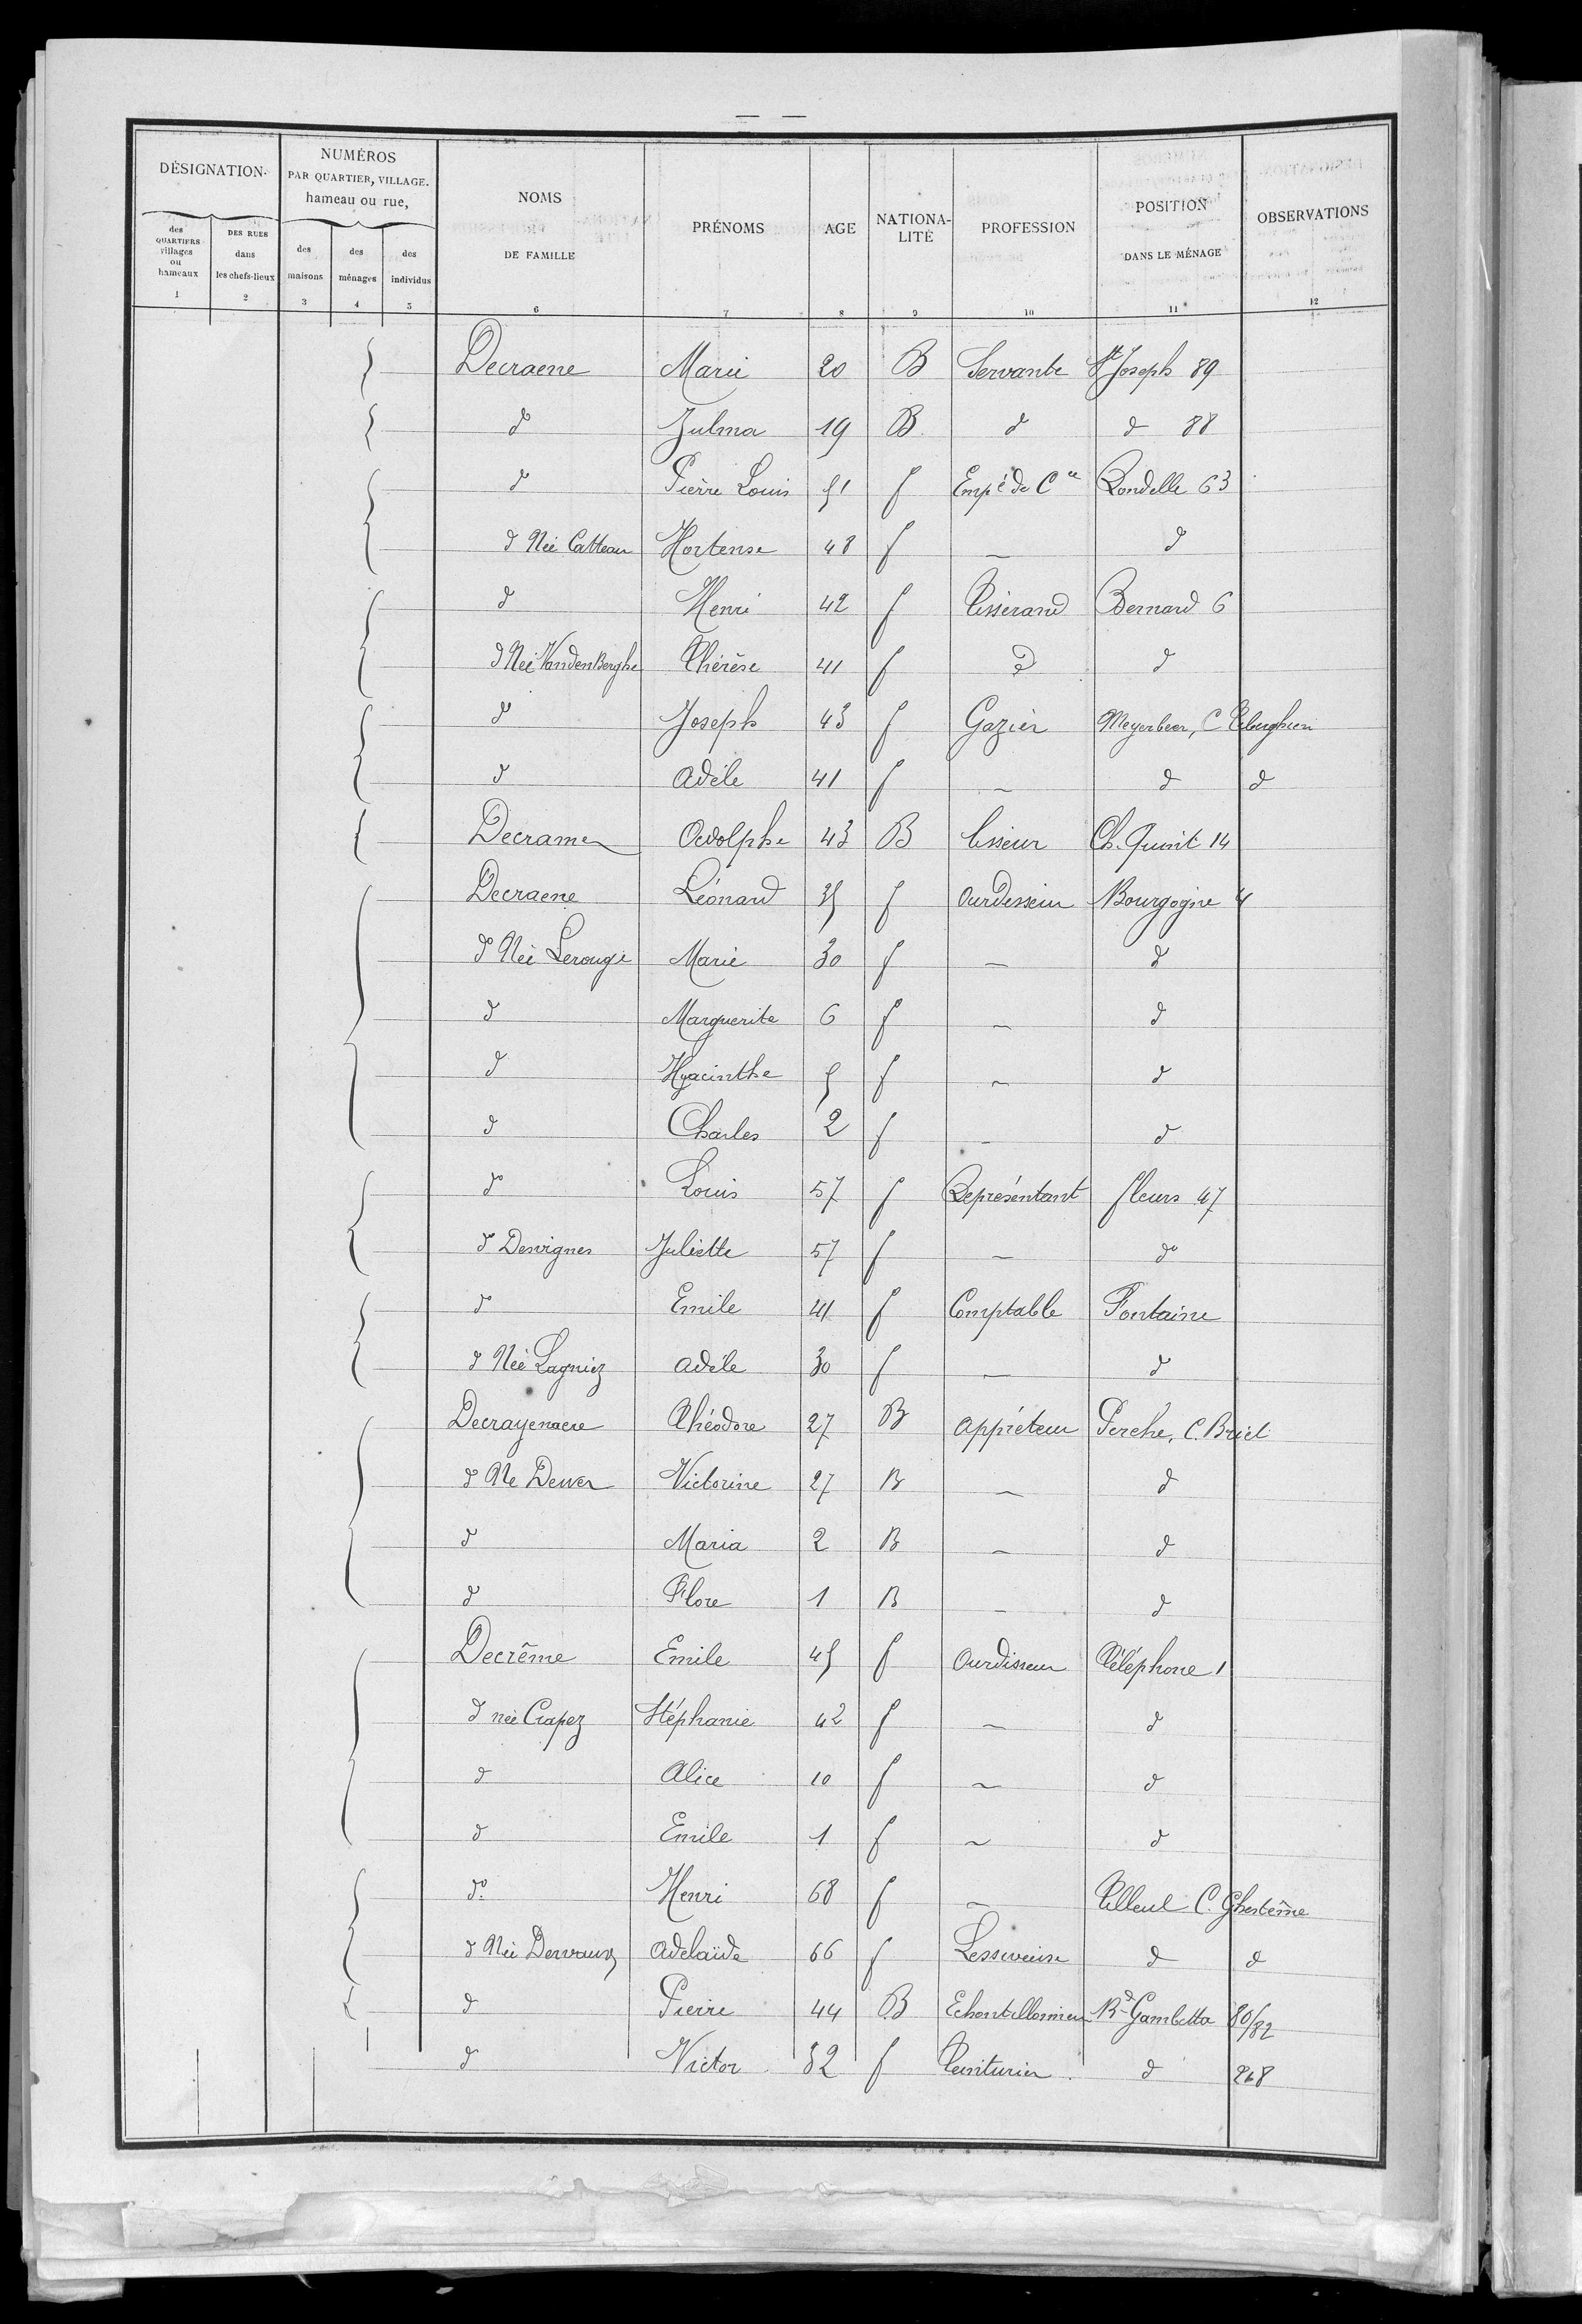 DÉSIGNATION
NUMÉROS
PAR QUARTIER, VILLAGE.
hameau ou rue,
des QUARTIERS villages ou hameaux
DES RUES dans les chefs-lieux
des maisons
des ménages
des individus
NOMS
DE FAMILLE
PRÉNOMS
AGE
NATIONALITÉ
PROFESSION
POSITION
DANS LE MÉNAGE
OBSERVATIONS
1 2 3 4 5 6 7 8 9 10 11 12
Decraene Marie 20 B Servante St Joseph 89
do Julma 19 B d d 88
d Pierre Louis 51 f Empé de Cce Rondelle 63
d Née Catteau Hortense 48 f — d
d Henri 42 f Tisserand Bernard 6
d Née VandenBerghe Thérèse 41 f d d
d Joseph 43 f Gazier Meyerbeer, C
d Adèle 41 f — d d
Decramer Adolphe 43 B Tisseur Ch. Quint 14
Decraene Léonard 35 f Ourdisseur Bourgogne 4
d Née Lerouge Marie 30 f — d
d Marguerite 6 f — d
d Hyacinthe 5 f — d
d Charles 2 f — d
do Louis 57 f Représentant fleurs 47
d Desvignes Juliette 57 f — do
do Emile 41 f Comptable Fontaine
d Née Lagniez Adèle 30 f — d
Decrayenaere Théodore 27 B Appréteur Perche, C. Briet
d Ne Dewer Victorine 27 B — d
d Maria 2 B — d
d Flore 1 B — d
Decrême Emile 45 f Ourdisseur Téléphone 1
d née Crapez Stéphanie 42 f — d
d Alice 10 f — d
d Emile 1 f — d
do Henri 68 f — Tilleul C. Ghestème
d Née Dervaux Adelaïde 66 f Lessiveuse d d
d Pierre 44 B Echantillonneur Bd Gambetta 80/82
d Victor 52 f Teinturier d 268